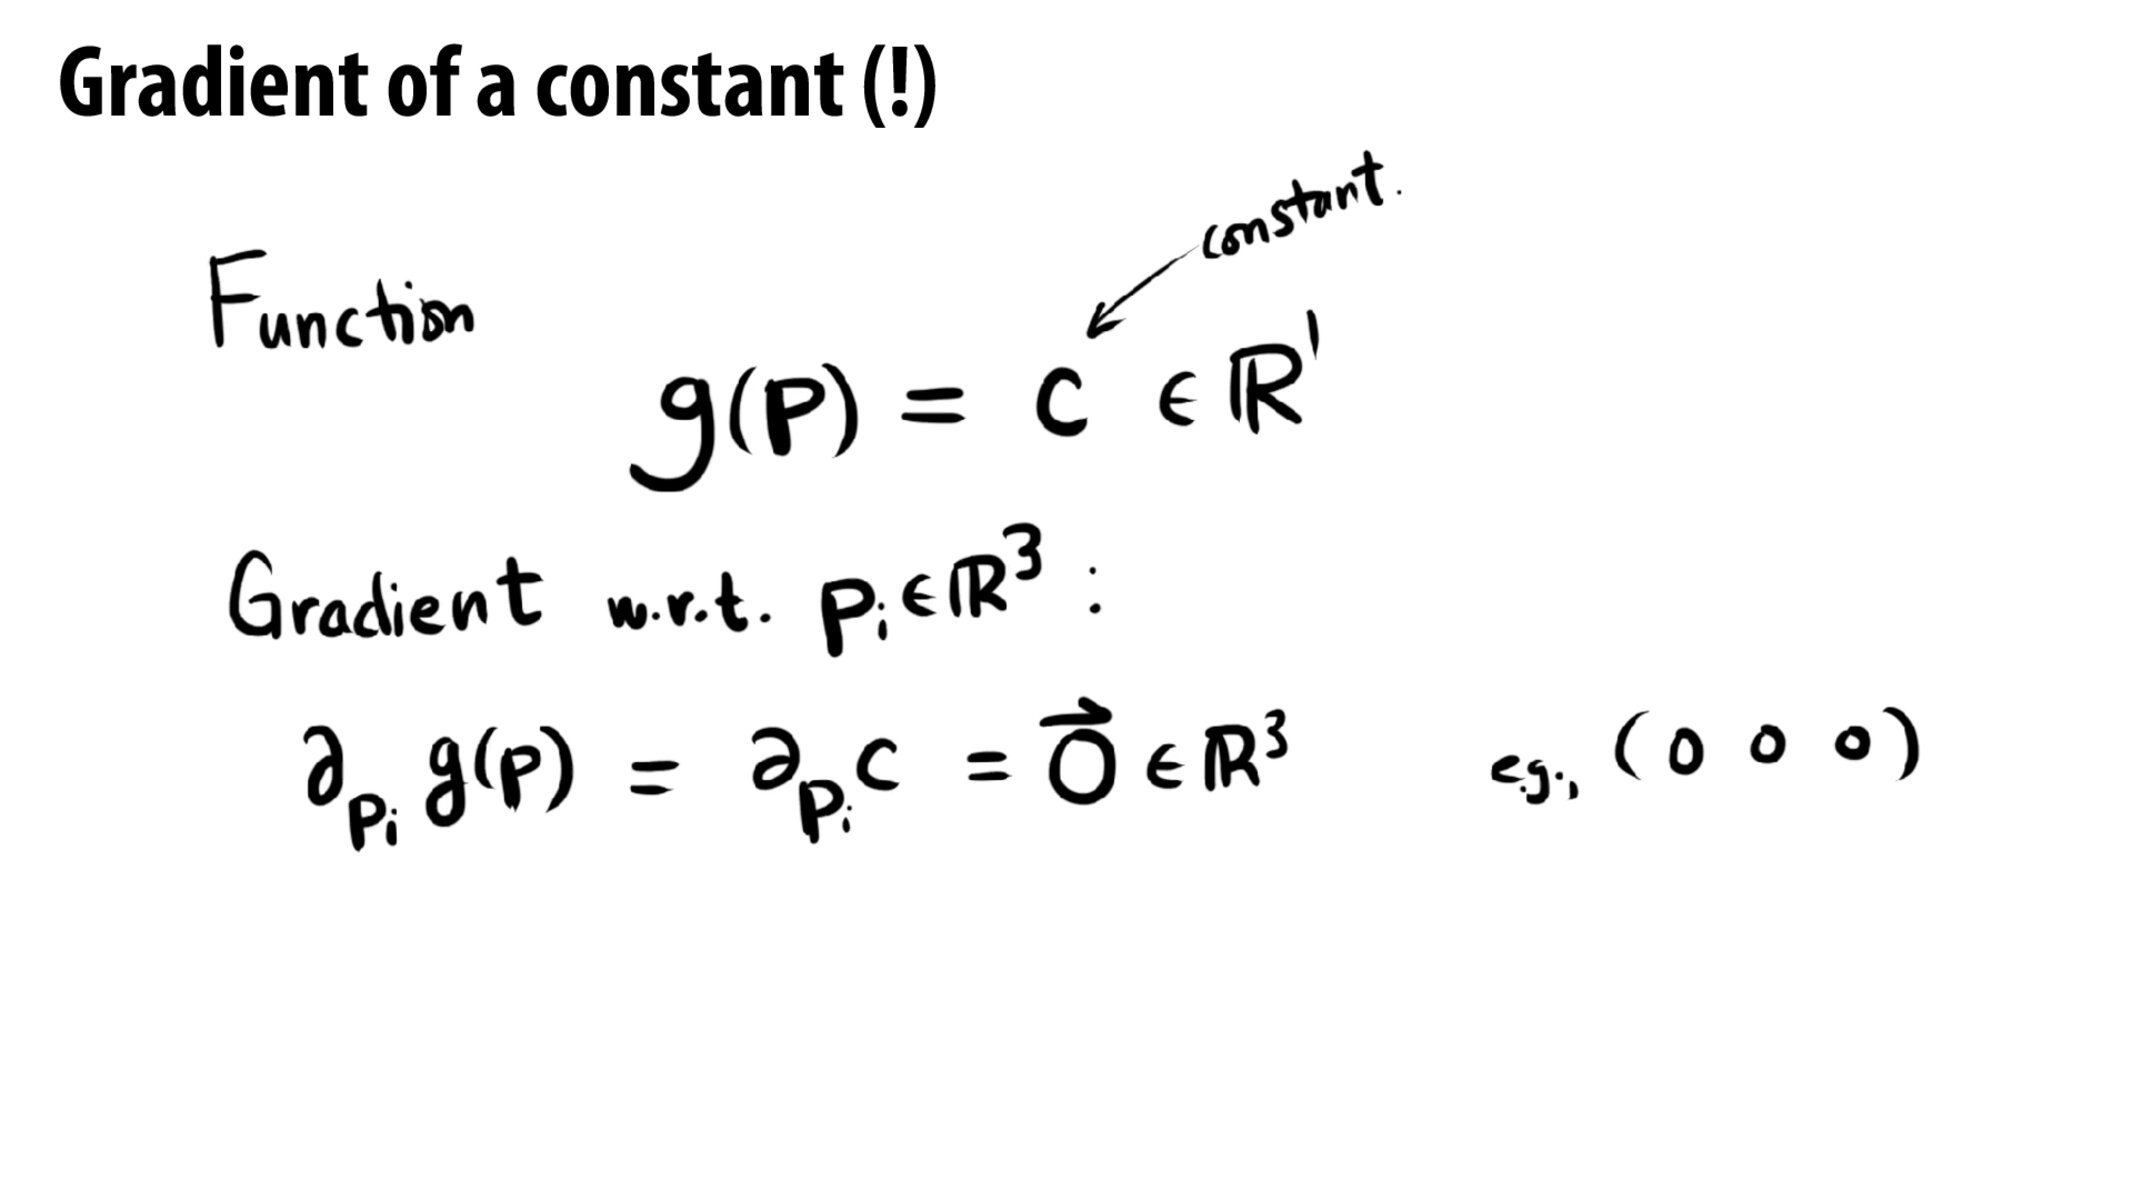 Gradient of a constant (!)
constant.
Function
g(p) = c ∈ ℝ¹
Gradient w.r.t. pᵢ ∈ ℝ³ :
∂_{pᵢ} g(p) = ∂_{pᵢ} c = 0⃗ ∈ ℝ³ e.g., (0 0 0)